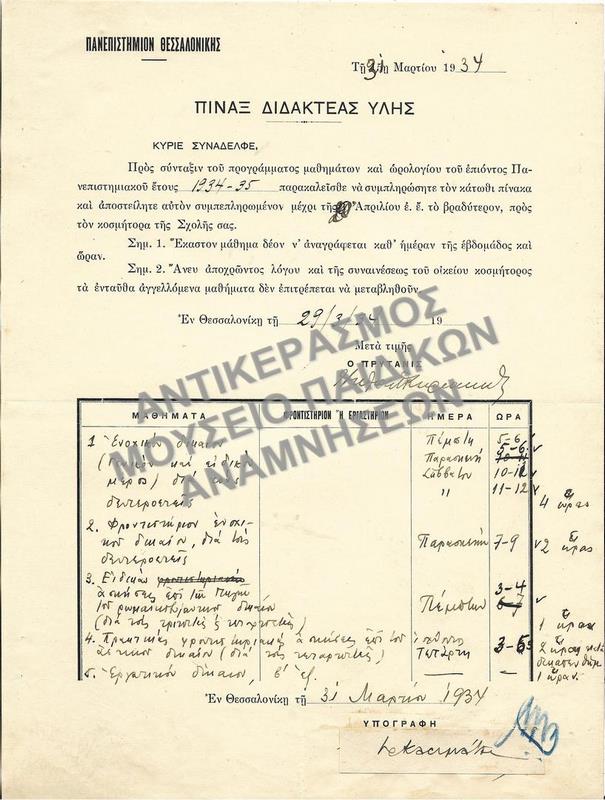 ΠΑΝΕΠΙΣΤΗΜΙΟΝ ΘΕΣΣΑΛΟΝΙΚΗΣ
Τῇ 31ῃ Μαρτίου 1934
ΠΙΝΑΞ ΔΙΔΑΚΤΕΑΣ ΥΛΗΣ
ΚΥΡΙΕ ΣΥΝΑΔΕΛΦΕ,
Πρὸς σύνταξιν τοῦ προγράμματος μαθημάτων καὶ ὡρολογίου τοῦ ἐπιόντος Πα-
νεπιστημιακοῦ ἔτους 1934-35 παρακαλεῖσθε νὰ συμπληρώσητε τὸν κάτωθι πίνακα
καὶ ἀποστείλητε αὐτὸν συμπεπληρωμένον μέχρι τῆς 20 Ἀπριλίου ἐ. ἔ. τὸ βραδύτερον, πρὸς
τὸν κοσμήτορα τῆς Σχολῆς σας.
Σημ. 1. Ἕκαστον μάθημα δέον ν' ἀναγράφεται καθ' ἡμέραν τῆς ἑβδομάδος καὶ
ὥραν.
Σημ. 2. Ἄνευ ἀποχρῶντος λόγου καὶ τῆς συναινέσεως τοῦ οἰκείου κοσμήτορος
τὰ ἐνταῦθα ἀγγελλόμενα μαθήματα δὲν ἐπιτρέπεται νὰ μεταβληθοῦν.
Ἐν Θεσσαλονίκῃ τῇ 29/3/34 19
Μετὰ τιμῆς
Ο ΠΡΥΤΑΝΙΣ
ΑΝΤΙΚΕΡΑΣΜΟΣ
ΜΟΥΣΕΙΟ ΠΑΙΔΙΚΩΝ
ΑΝΑΜΝΗΣΕΩΝ
ΜΑΘΗΜΑΤΑ ΦΡΟΝΤΙΣΤΗΡΙΟΝ Ἢ ΕΡΓΑΣΤΗΡΙΟΝ ΗΜΕΡΑ ΩΡΑ
1 Ἐνοχικὸν δίκαιον Πέμπτη 5-6
(Γενικὸν καὶ εἰδικὸν Παρασκευὴ 5-6 10-11
μέρος) διὰ τοὺς Σάββατον 10-12
δευτεροετεῖς " 11-12
4 ὥρας
2. Φροντιστήριον ἐνοχι-
κοῦ δικαίου, διὰ τοὺς Παρασκευὴ 7-9 2 ὥρας
δευτεροετεῖς
3. Εἰδικαὶ φροντιστηριακαὶ 3-4
ἀσκήσεις ἐπὶ τῶν πηγῶν Πέμπτην 6-7
τοῦ δικαίου
1 ὥραν
4. Πρακτικὲς φροντιστηριακὲς ἀσκήσεις ἐπὶ τοῦ
ἀστικοῦ δικαίου (διὰ τοὺς τεταρτοετεῖς) Τετάρτη 3-5
2 ὥρας
5. Ἐργατικὸν δίκαιον,
1 ὥραν
Ἐν Θεσσαλονίκῃ τῇ 31 Μαρτίου 1934
ΥΠΟΓΡΑΦΗ